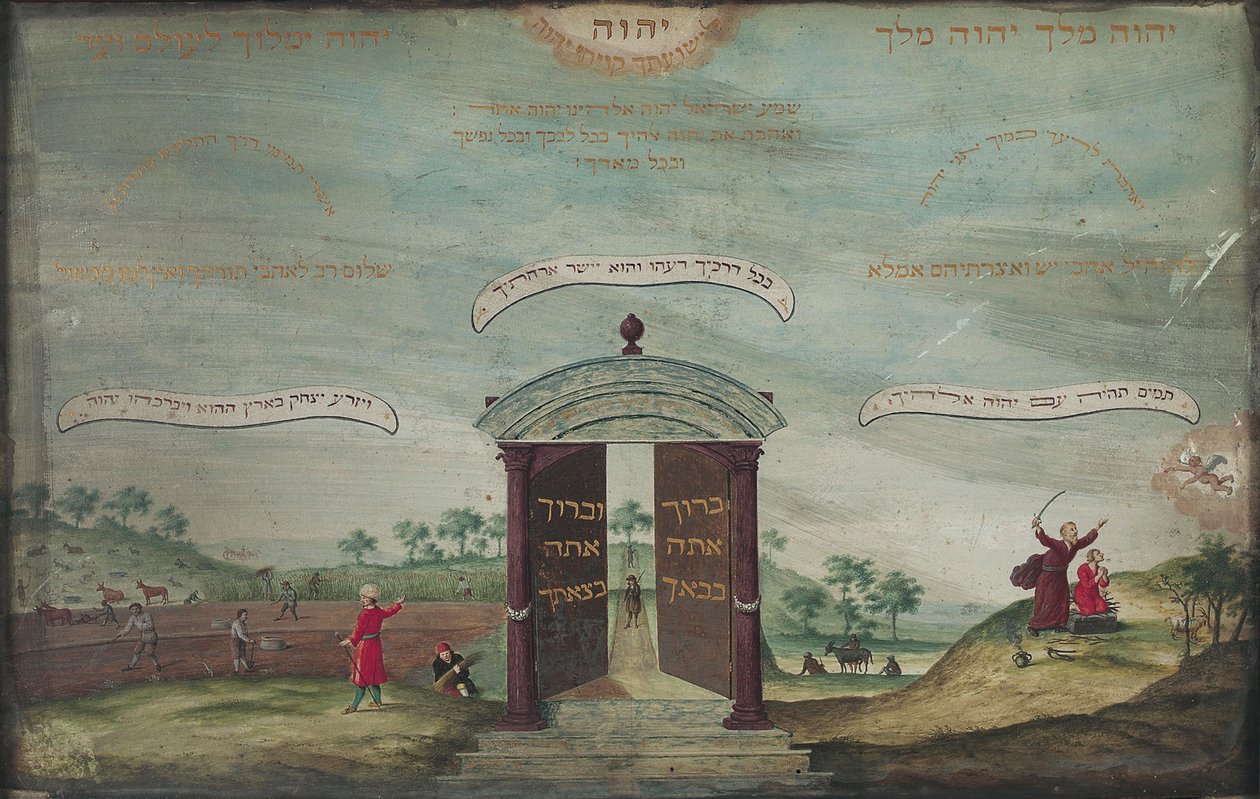 יהוה מלך יהוה מלך
יהוה
לישועתך קויתי יהוה
יהוה ימלוך לעולם ועד
שמע ישראל יהוה אלהינו יהוה אחד :
ואהבת את יהוה אלהיך בכל לבבך ובכל נפשך
ובכל מאדך :
ואהבת לרעך כמוך אני יהוה
אשרי תמימי דרך ההלכים בתורת
להנחיל אהבי יש ואצרתיהם אמלא
שלום רב לאהבי תורתך ואין למו מכשול
בכל דרכיך דעהו והוא יישר ארחתיך
תמים תהיה עם יהוה אלהיך
ויזרע יצחק בארץ ההוא ויברכהו יהוה
ברוך
אתה
בבאך
וברוך
אתה
בצאתך